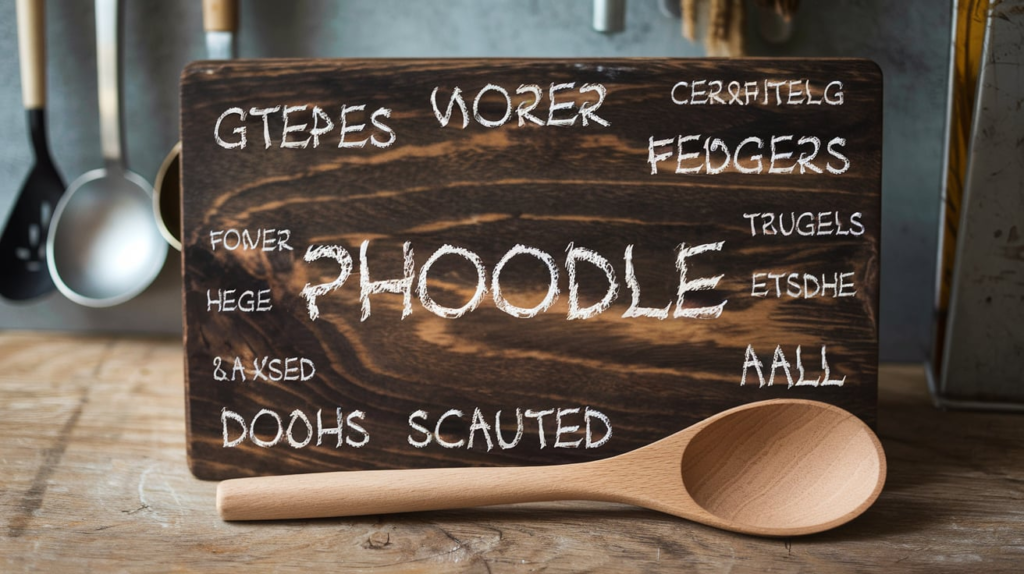 GTEPES
WORER
CERRFITELG
FEDGERS
FONER
TRUGELS
PHOODLE
HEGE
ETSDHE
&AXSED
AALL
DOOHS SCAUTED